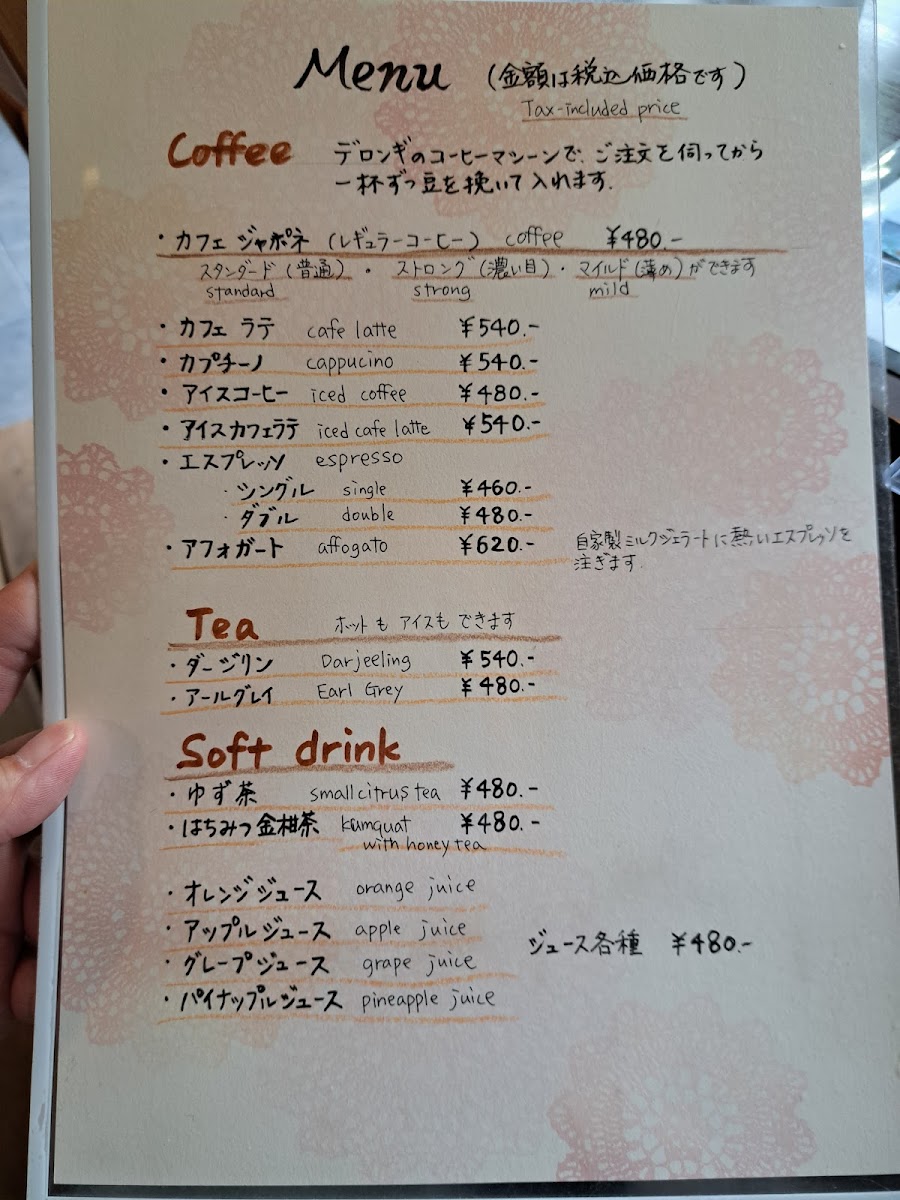 Menu (金額は税込価格です)
Tax-included price
Coffee デロンギのコーヒーマシーンで、ご注文を伺ってから
一杯ずつ豆を挽いて入れます.
・カフェ ジャポネ (レギュラーコーヒー) coffee ¥480.-
スタンダード(普通)・ストロング(濃い目)・マイルド(薄め)ができます
standard strong mild
・カフェ ラテ cafe latte ¥540.-
・カプチーノ cappucino ¥540.-
・アイスコーヒー iced coffee ¥480.-
・アイスカフェラテ iced cafe latte ¥540.-
・エスプレッソ espresso
・シングル single ¥460.-
・ダブル double ¥480.-
・アフォガート affogato ¥620.- 自家製ミルクジェラートに熱いエスプレッソを
注ぎます.
Tea ホットも アイスも できます
・ダージリン Darjeeling ¥540.-
・アールグレイ Earl Grey ¥480.-
Soft drink
・ゆず茶 small citrus tea ¥480.-
・はちみつ金柑茶 kumquat ¥480.-
with honey tea
・オレンジジュース orange juice
・アップルジュース apple juice
ジュース各種 ¥480.-
・グレープジュース grape juice
・パイナップルジュース pineapple juice